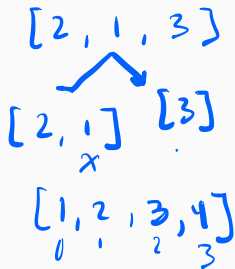 [2, 1, 3]
[2, 1] [3]
x
[1, 2, 3, 4]
0 1 2 3